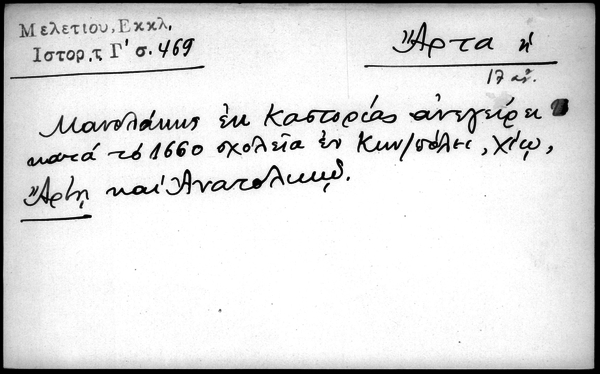 Μελετίου, Εκκλ,
Ιστορ, τ Γ' σ. 469
Ἄρτα
17 αἰ.
Μανολάκης ἐκ Καστορίας ἀνεγείρει
κατά τό 1660 σχολεῖα ἐν Κων/πόλει, Χίῳ,
Ἄρτῃ καί Ἀνατολικῷ.